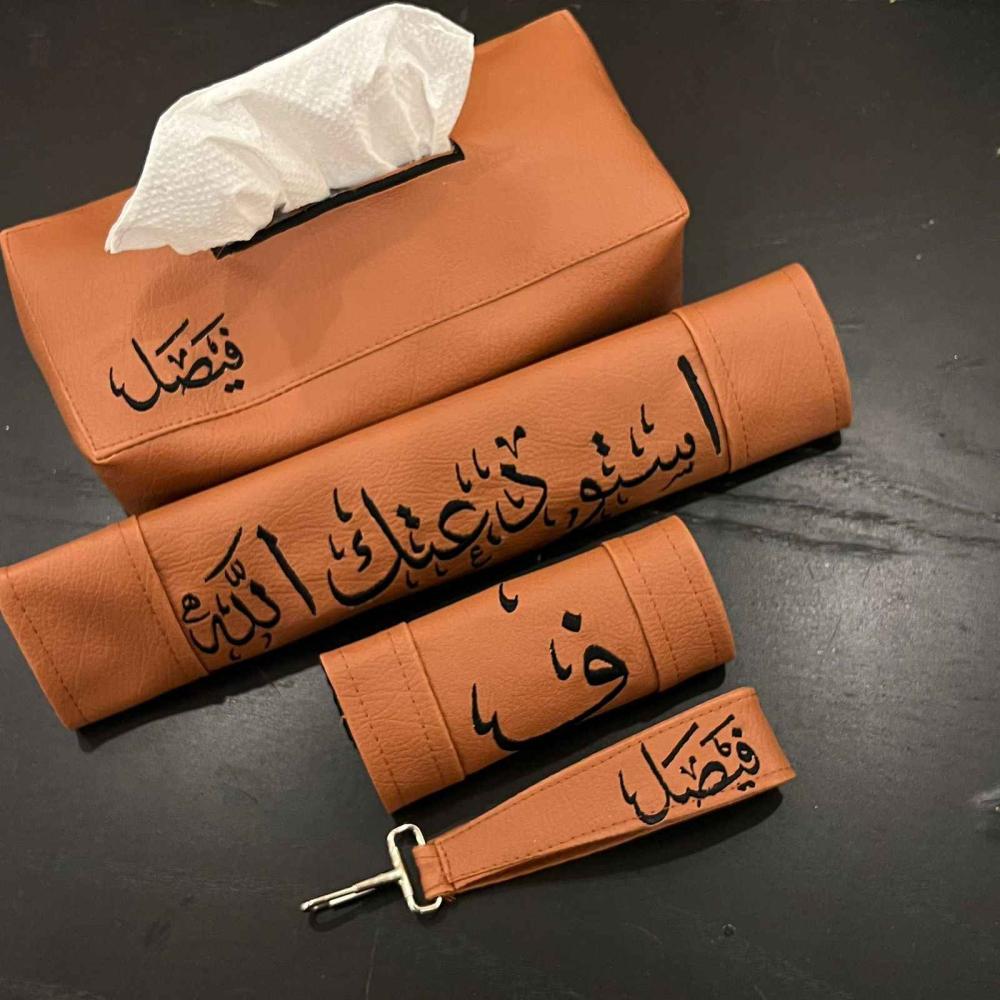 فيصل
استودعتك الله
ف
فيصل